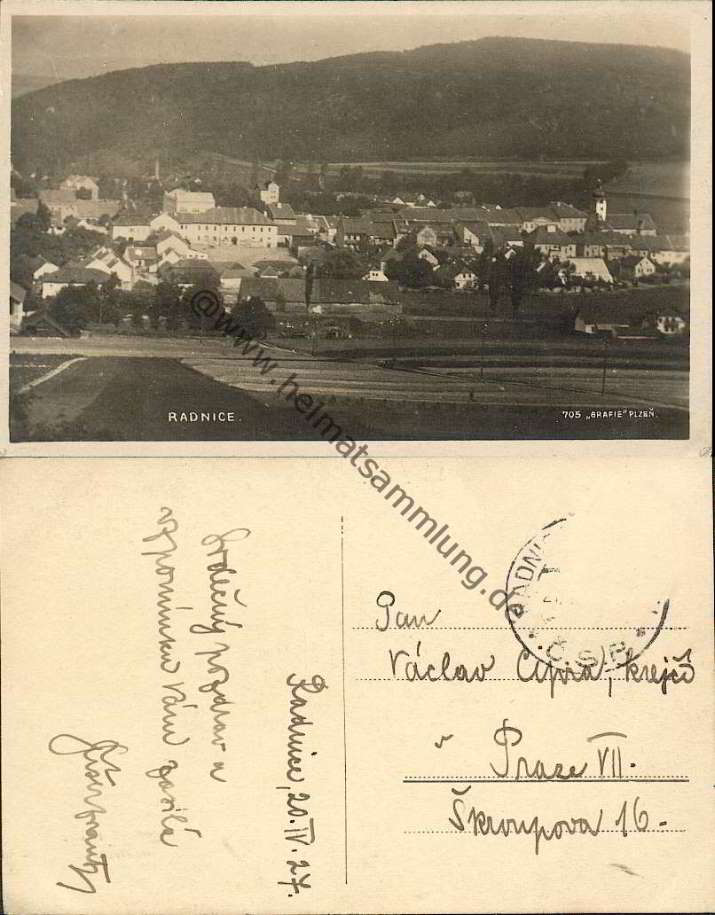 RADNICE.
705 „GRAFIE" PLZEŇ.
@www.heimatsammlung.de
Radnice, 20. IV. 27.
Srdečný pozdrav a
vzpomínku Vám zasílá
RADNI
Č.S.P.
Pan
Václav Cipra, krejčí
v Praze VII.
Škroupova 16.